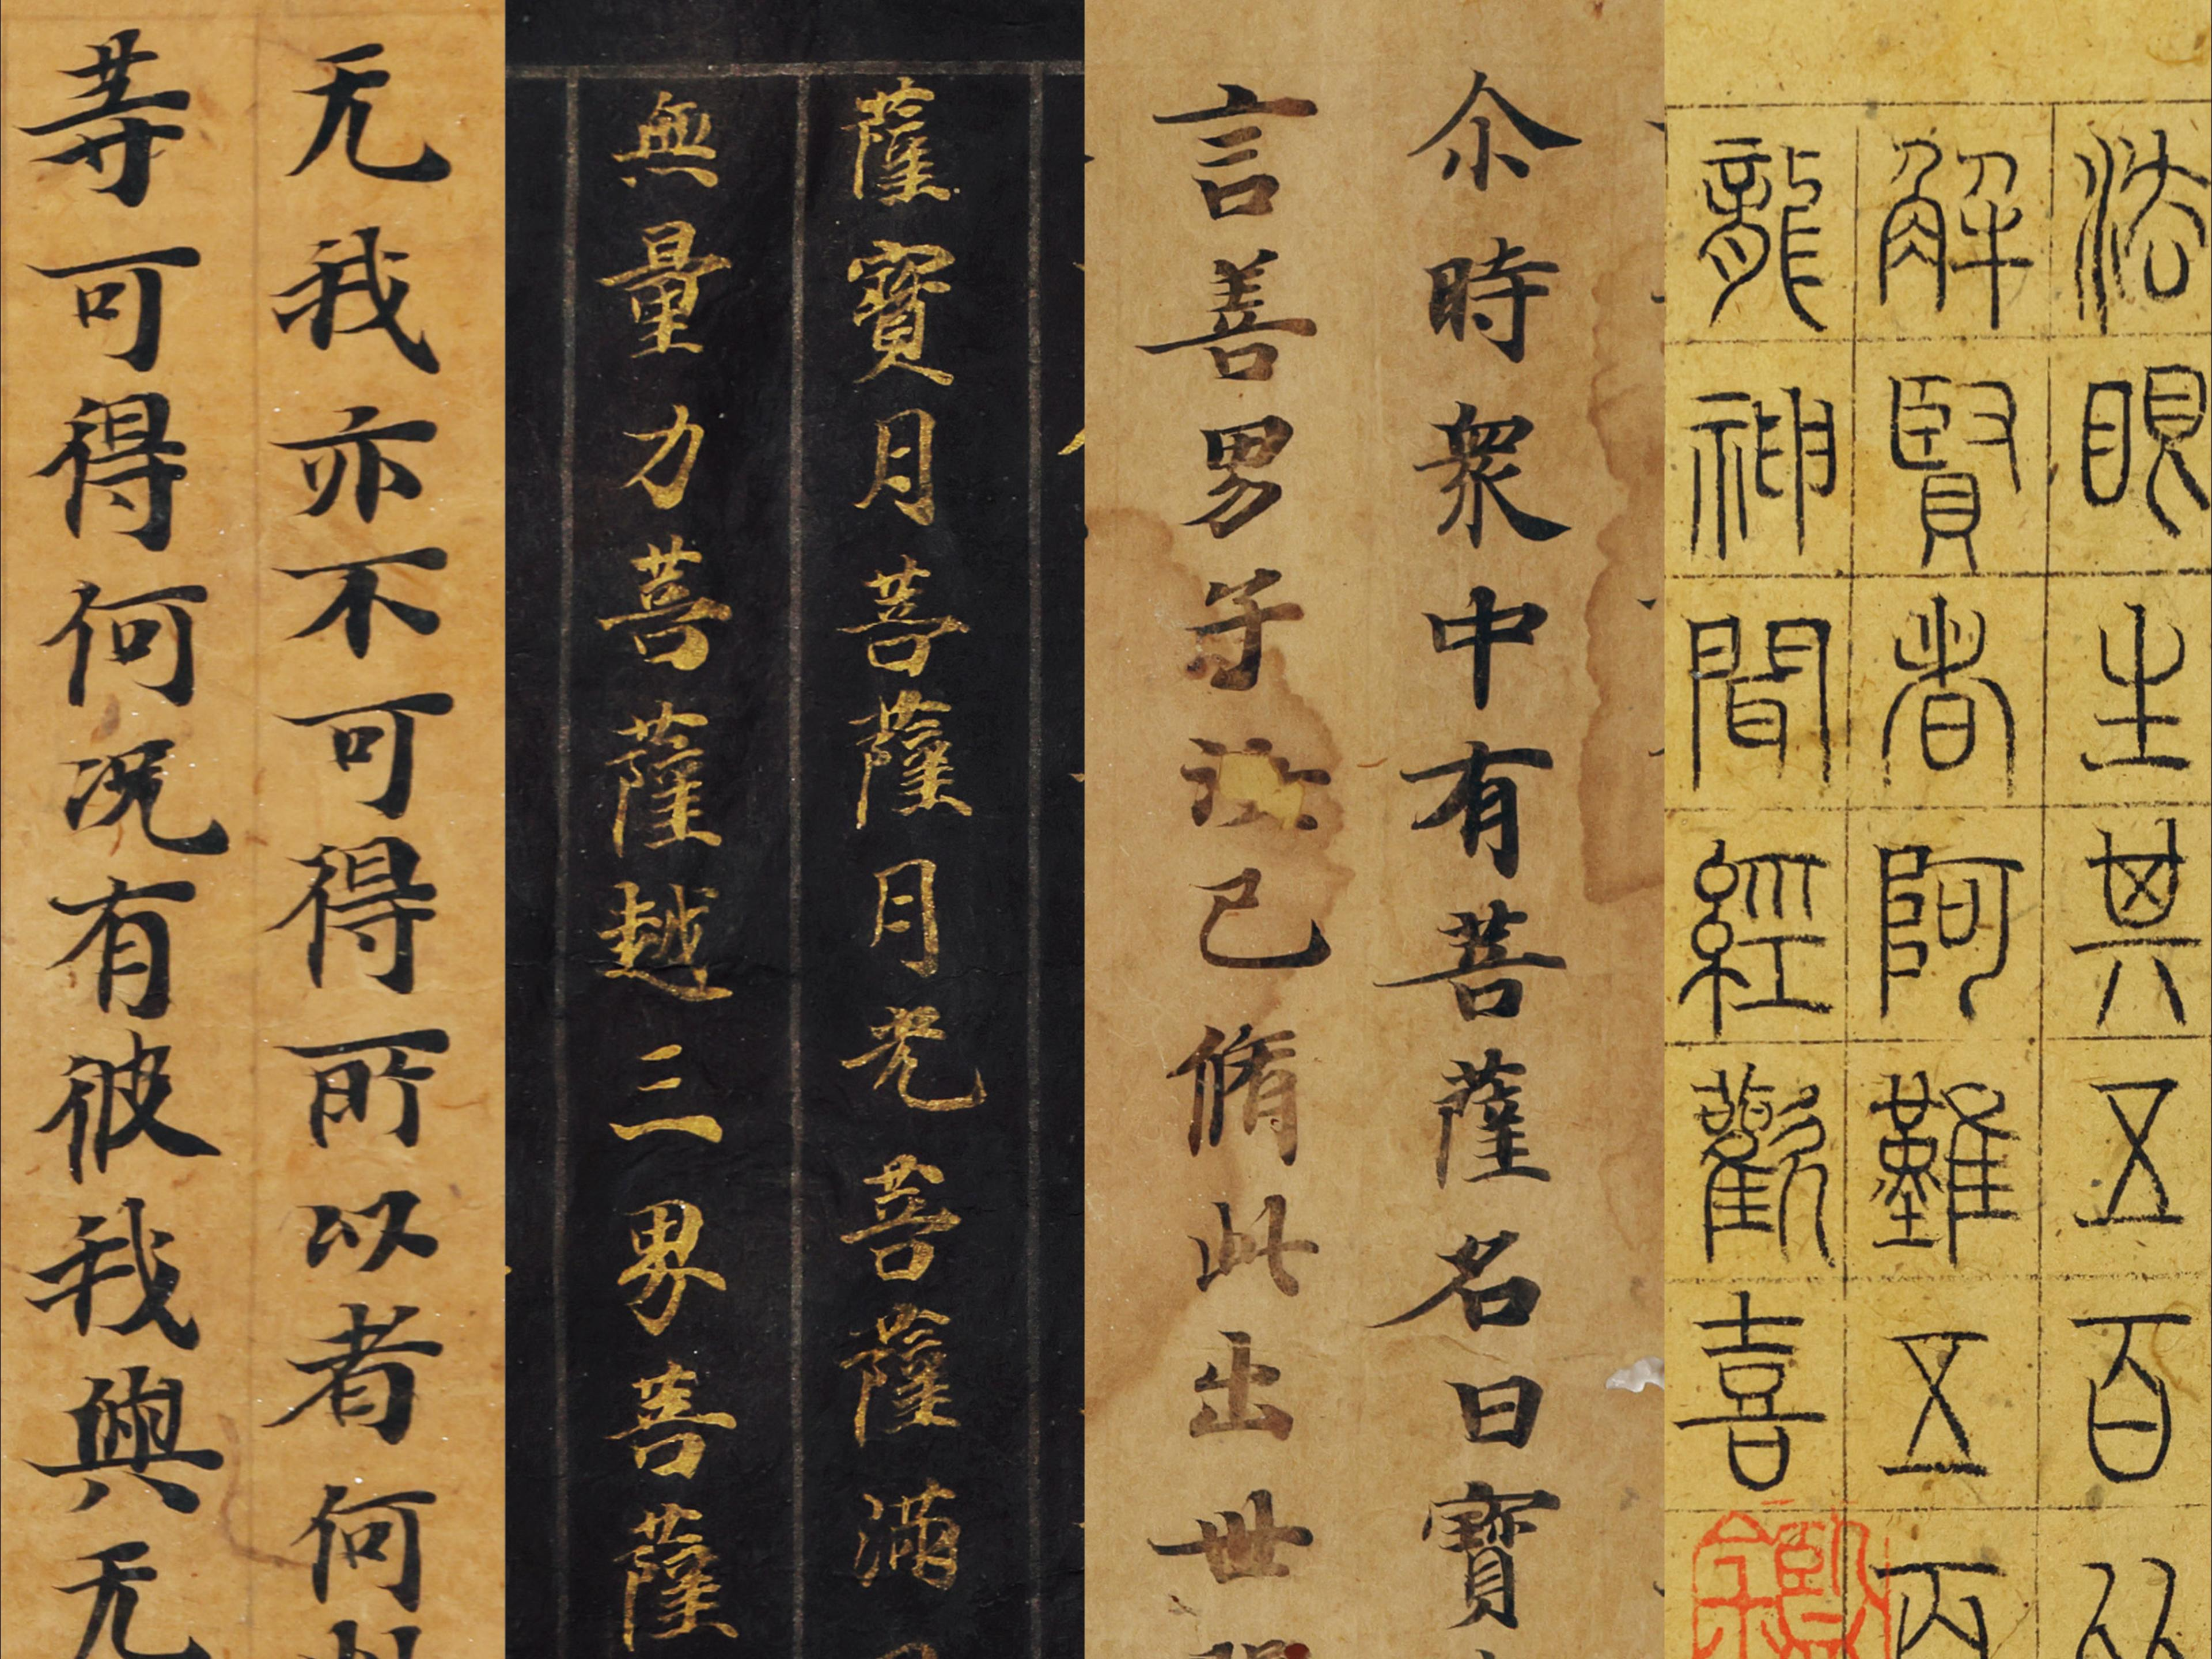 法眼生其五百
解賢者阿難五
龍神聞經歡喜
尒時衆中有菩薩名曰寶
言善男子汝已脩此出世
薩寶月菩薩月光菩薩滿
無量力菩薩越三界菩薩
无我亦不可得所以者何
等可得何況有彼我與无